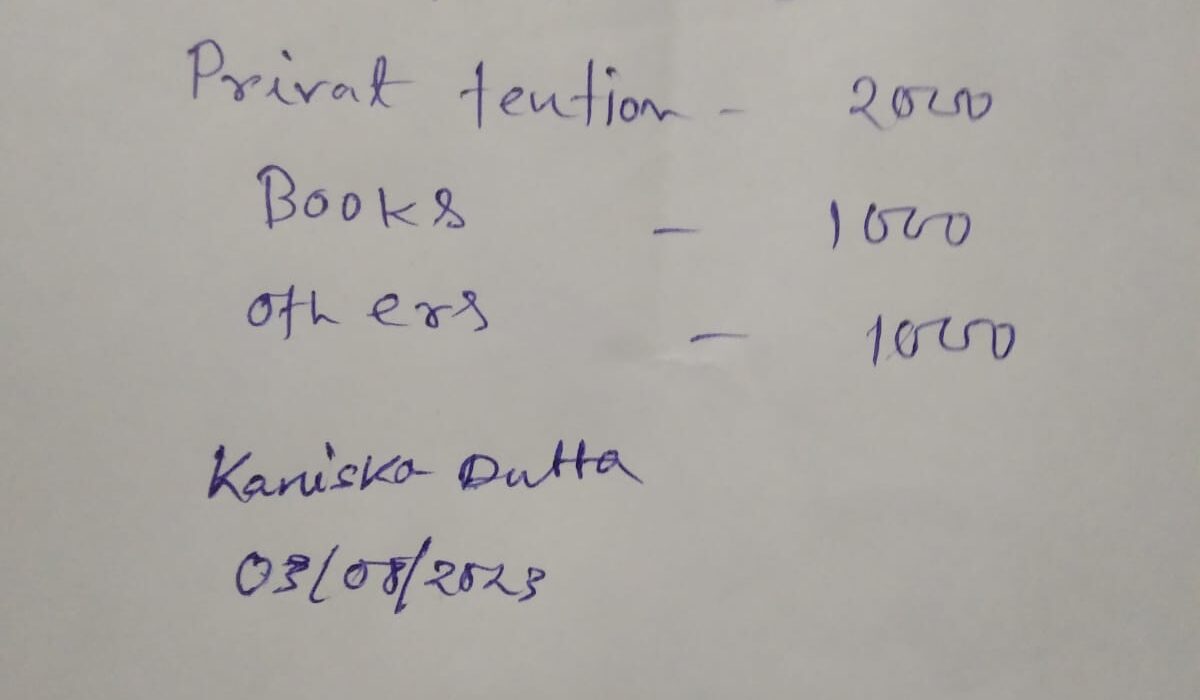 Privat tention - 2000
Books - 1000
others - 1000
Kaniska Dutta
03/08/2023